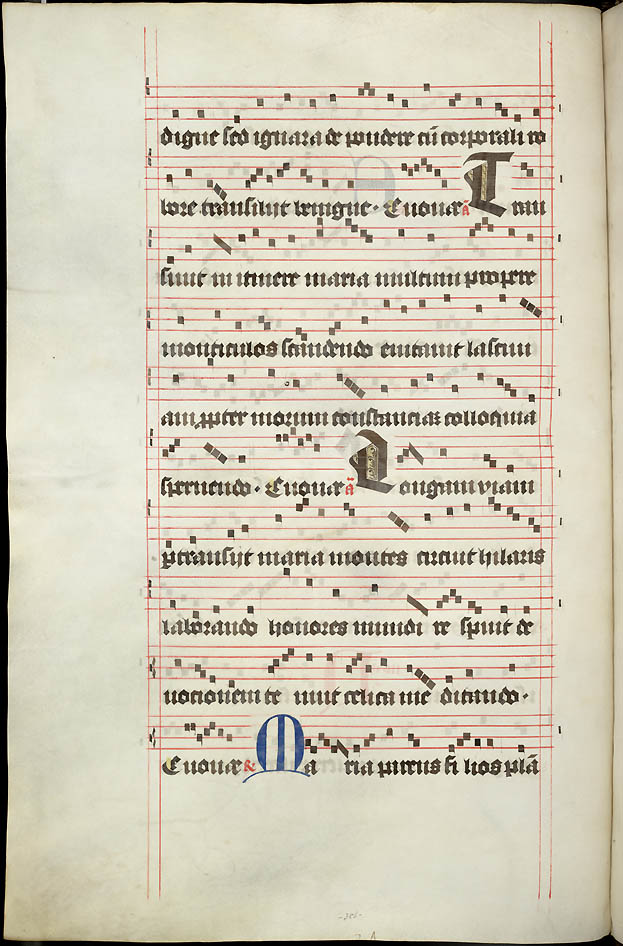 digne sed ignara de pondere cū corporali ro
bore transilijt benigne. Euouae ā Tran
siuit in itinere maria multum propere
monticulos scandendo euitauit lasciui
am ꝓpter morum constanciaꝫ colloquia
spernendo. Euouae ā Longam viam
ꝑtransijt maria montes circuit hilaris
laborando honores mundi re spuit de
uocionem te nuit celica me ditando.
Euouae & Ma ria purus fi lios plā